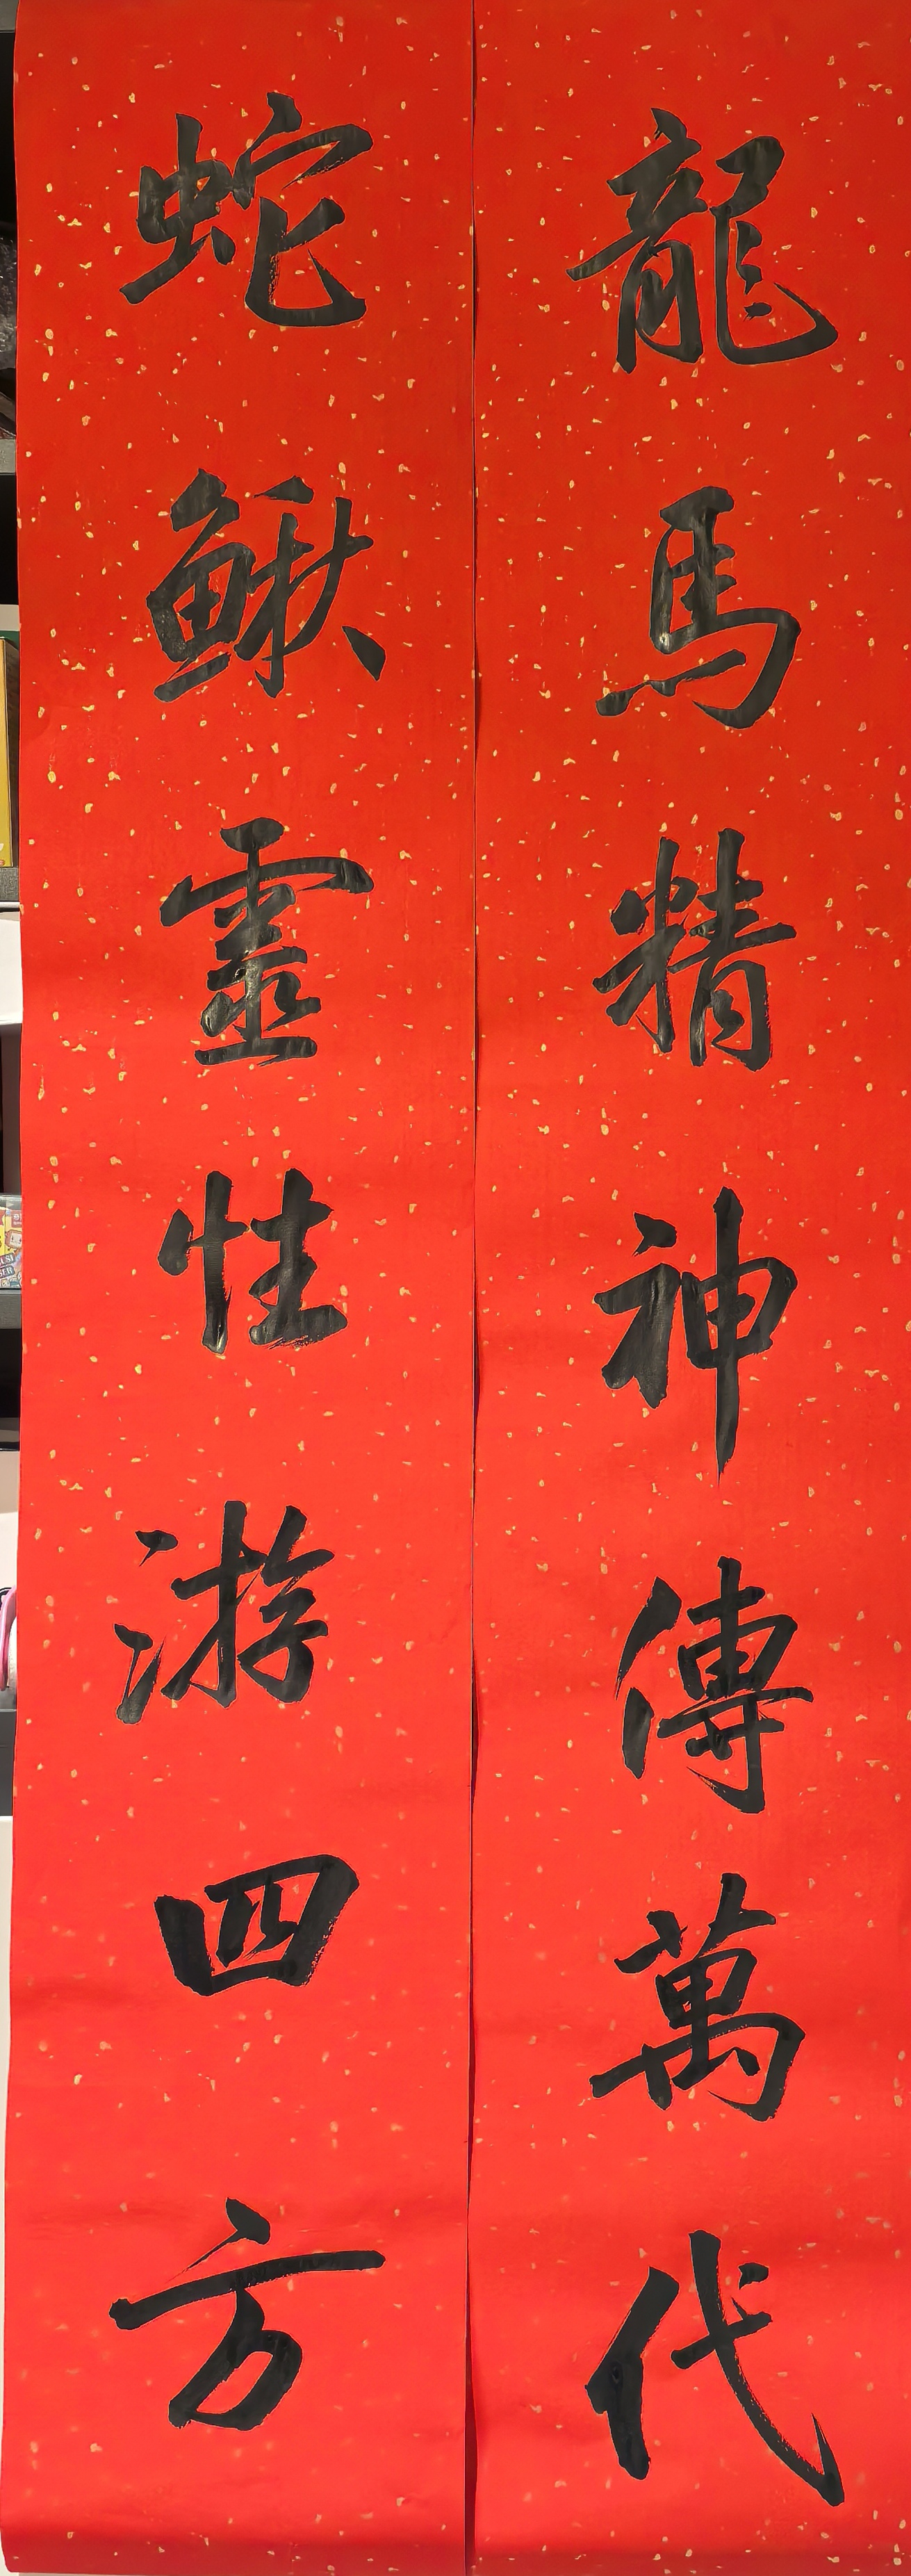 龍馬精神傳萬代
蛇鰍靈性游四方